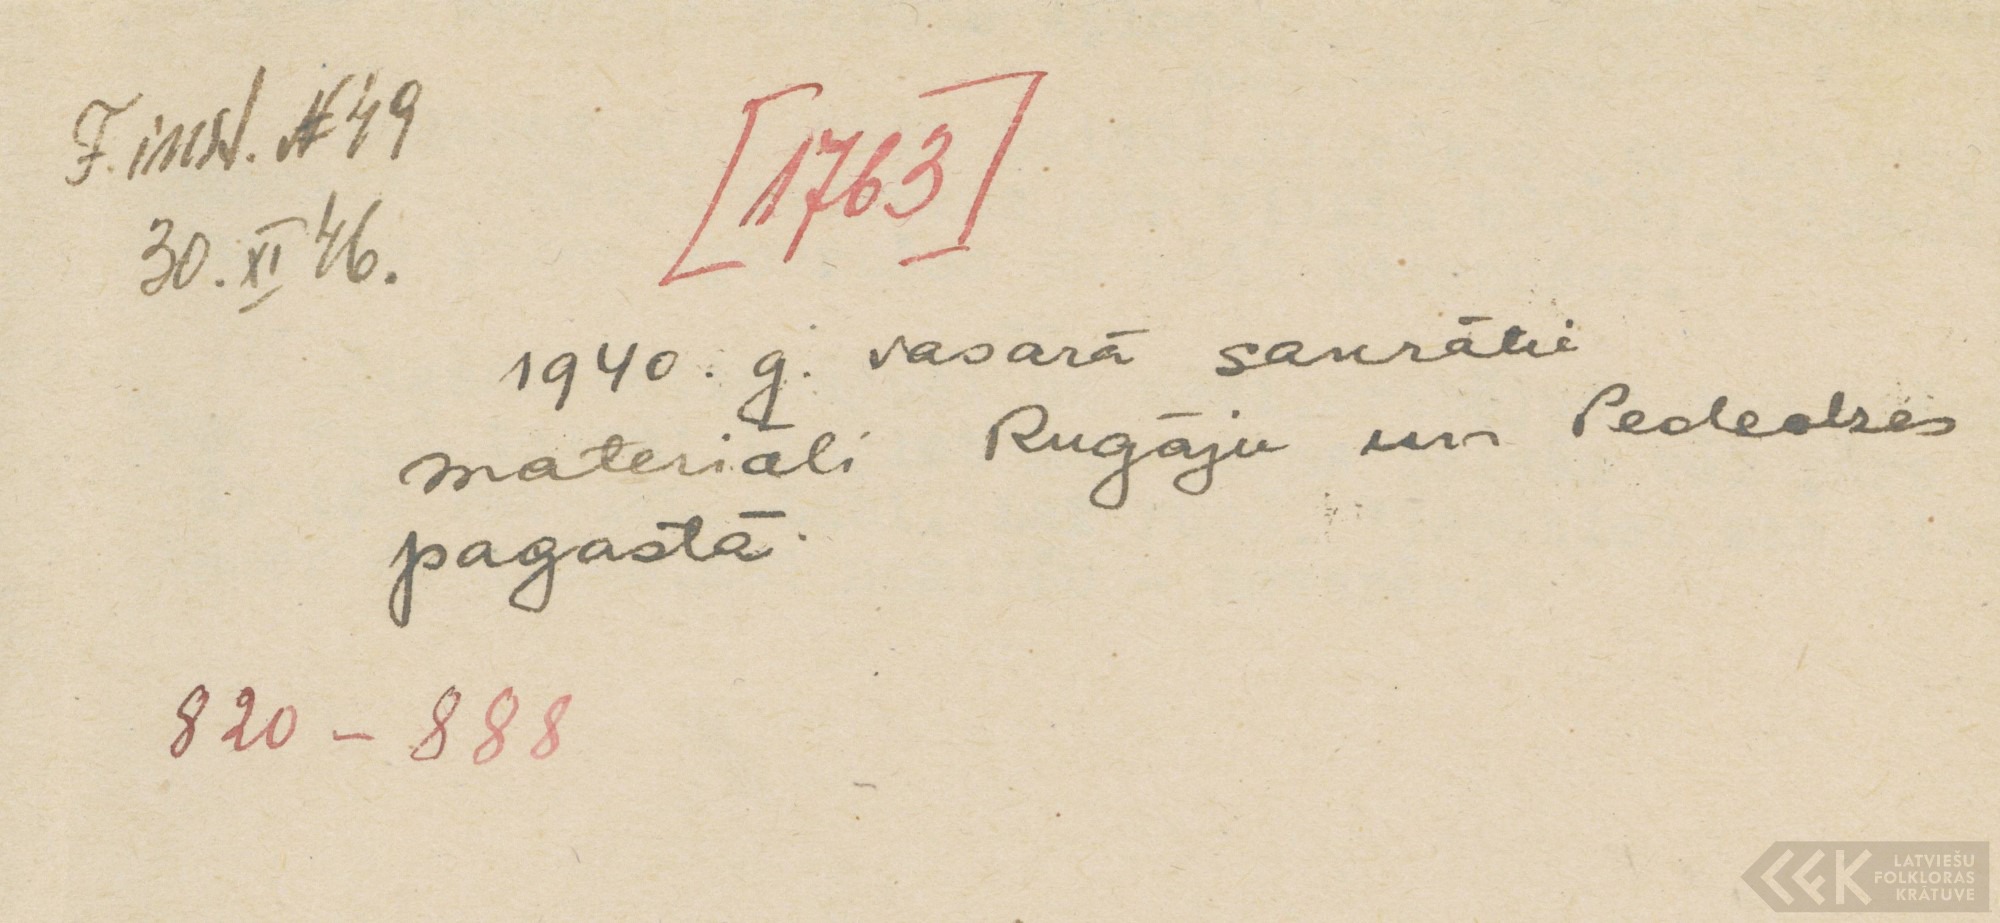 F. inst. № 49
30. XI 46.
[1763]
1940. g. vasarā sakrāti
materiāli Rugāju un Pededzes
pagastā.
820 – 888
LATVIEŠU
FOLKLORAS
KRĀTUVE